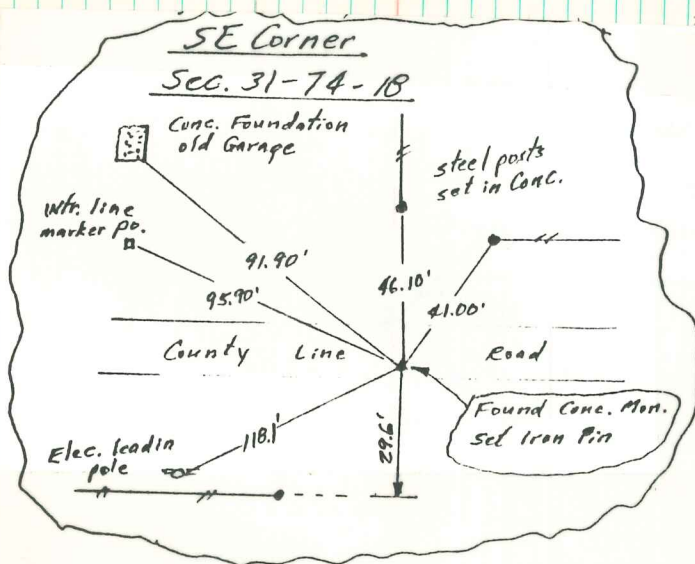 SE Corner
Sec. 31-74-18
Conc. Foundation
old Garage
steel posts
set in Conc.
Wtr. line
marker po.
91.90'
95.90'
46.10'
41.00'
County Line Road
Found Conc. Mon.
set Iron Pin
118.1'
29.6'
Elec. leadin
pole